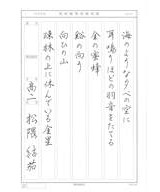 海のような夕べの空に
耳鳴りほどの羽音をたてる
金の蜜蜂
谿の向う
向ひの山
疎林の上に休んでいる金星
高二 松隈 結茄